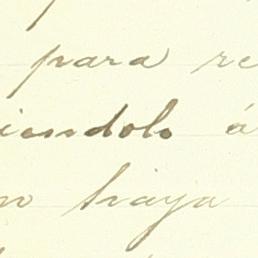 para re
iendolo á
n haya